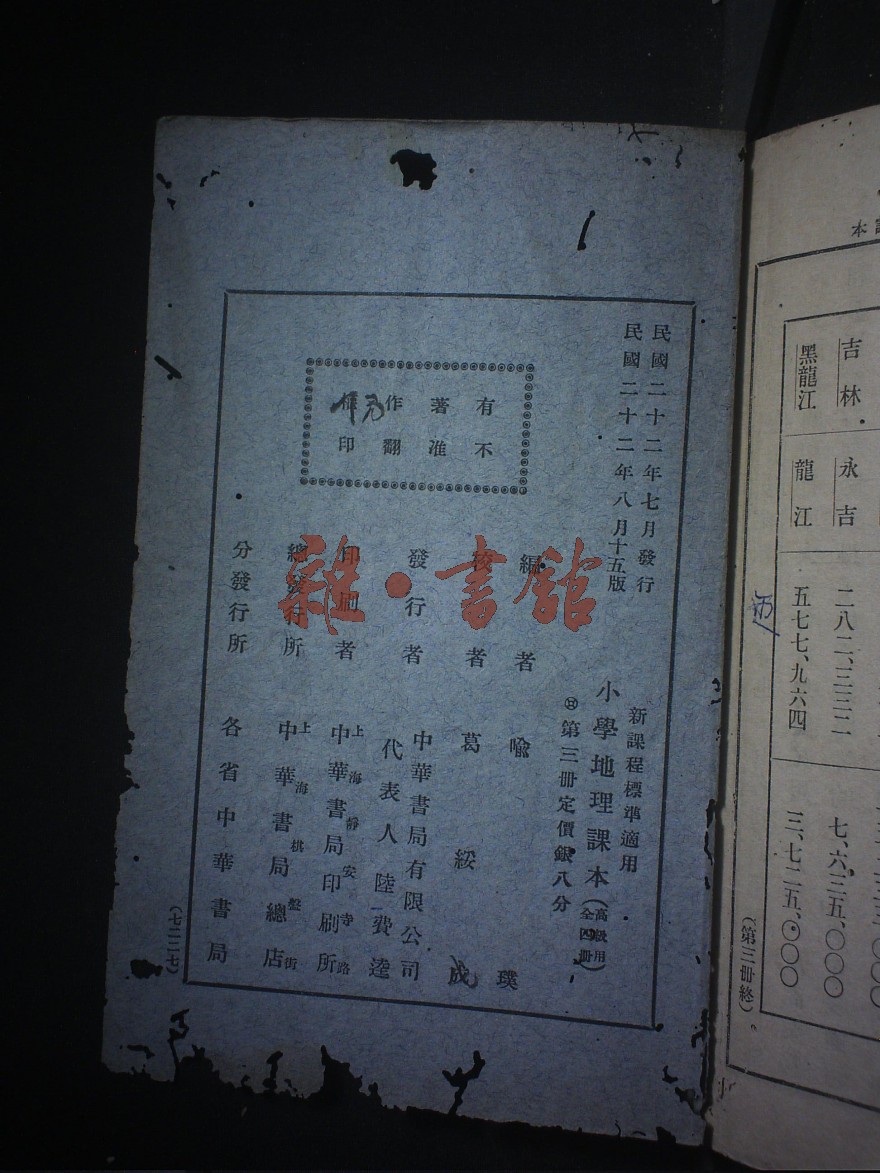 民國二十二年七月發行
民國二十二年八月十五版
有著作權
不准翻印
新課程標準適用
小學地理課本(高級用 全四冊)
第三冊定價銀八分
編者 喻璞
校者 葛綏成
發行者 中華書局有限公司
代表人陸費逵
印刷者 上海靜安寺路
中華書局印刷所
總發行所 上海棋盤街
中華書局總店
分發行所 各省中華書局
(七二二七)
雜·書館
本
吉林 永吉 二八二、三三二 七、六三五、〇〇〇
黑龍江 龍江 五七七、九六四 三、七二五、〇〇〇
(第三冊終)